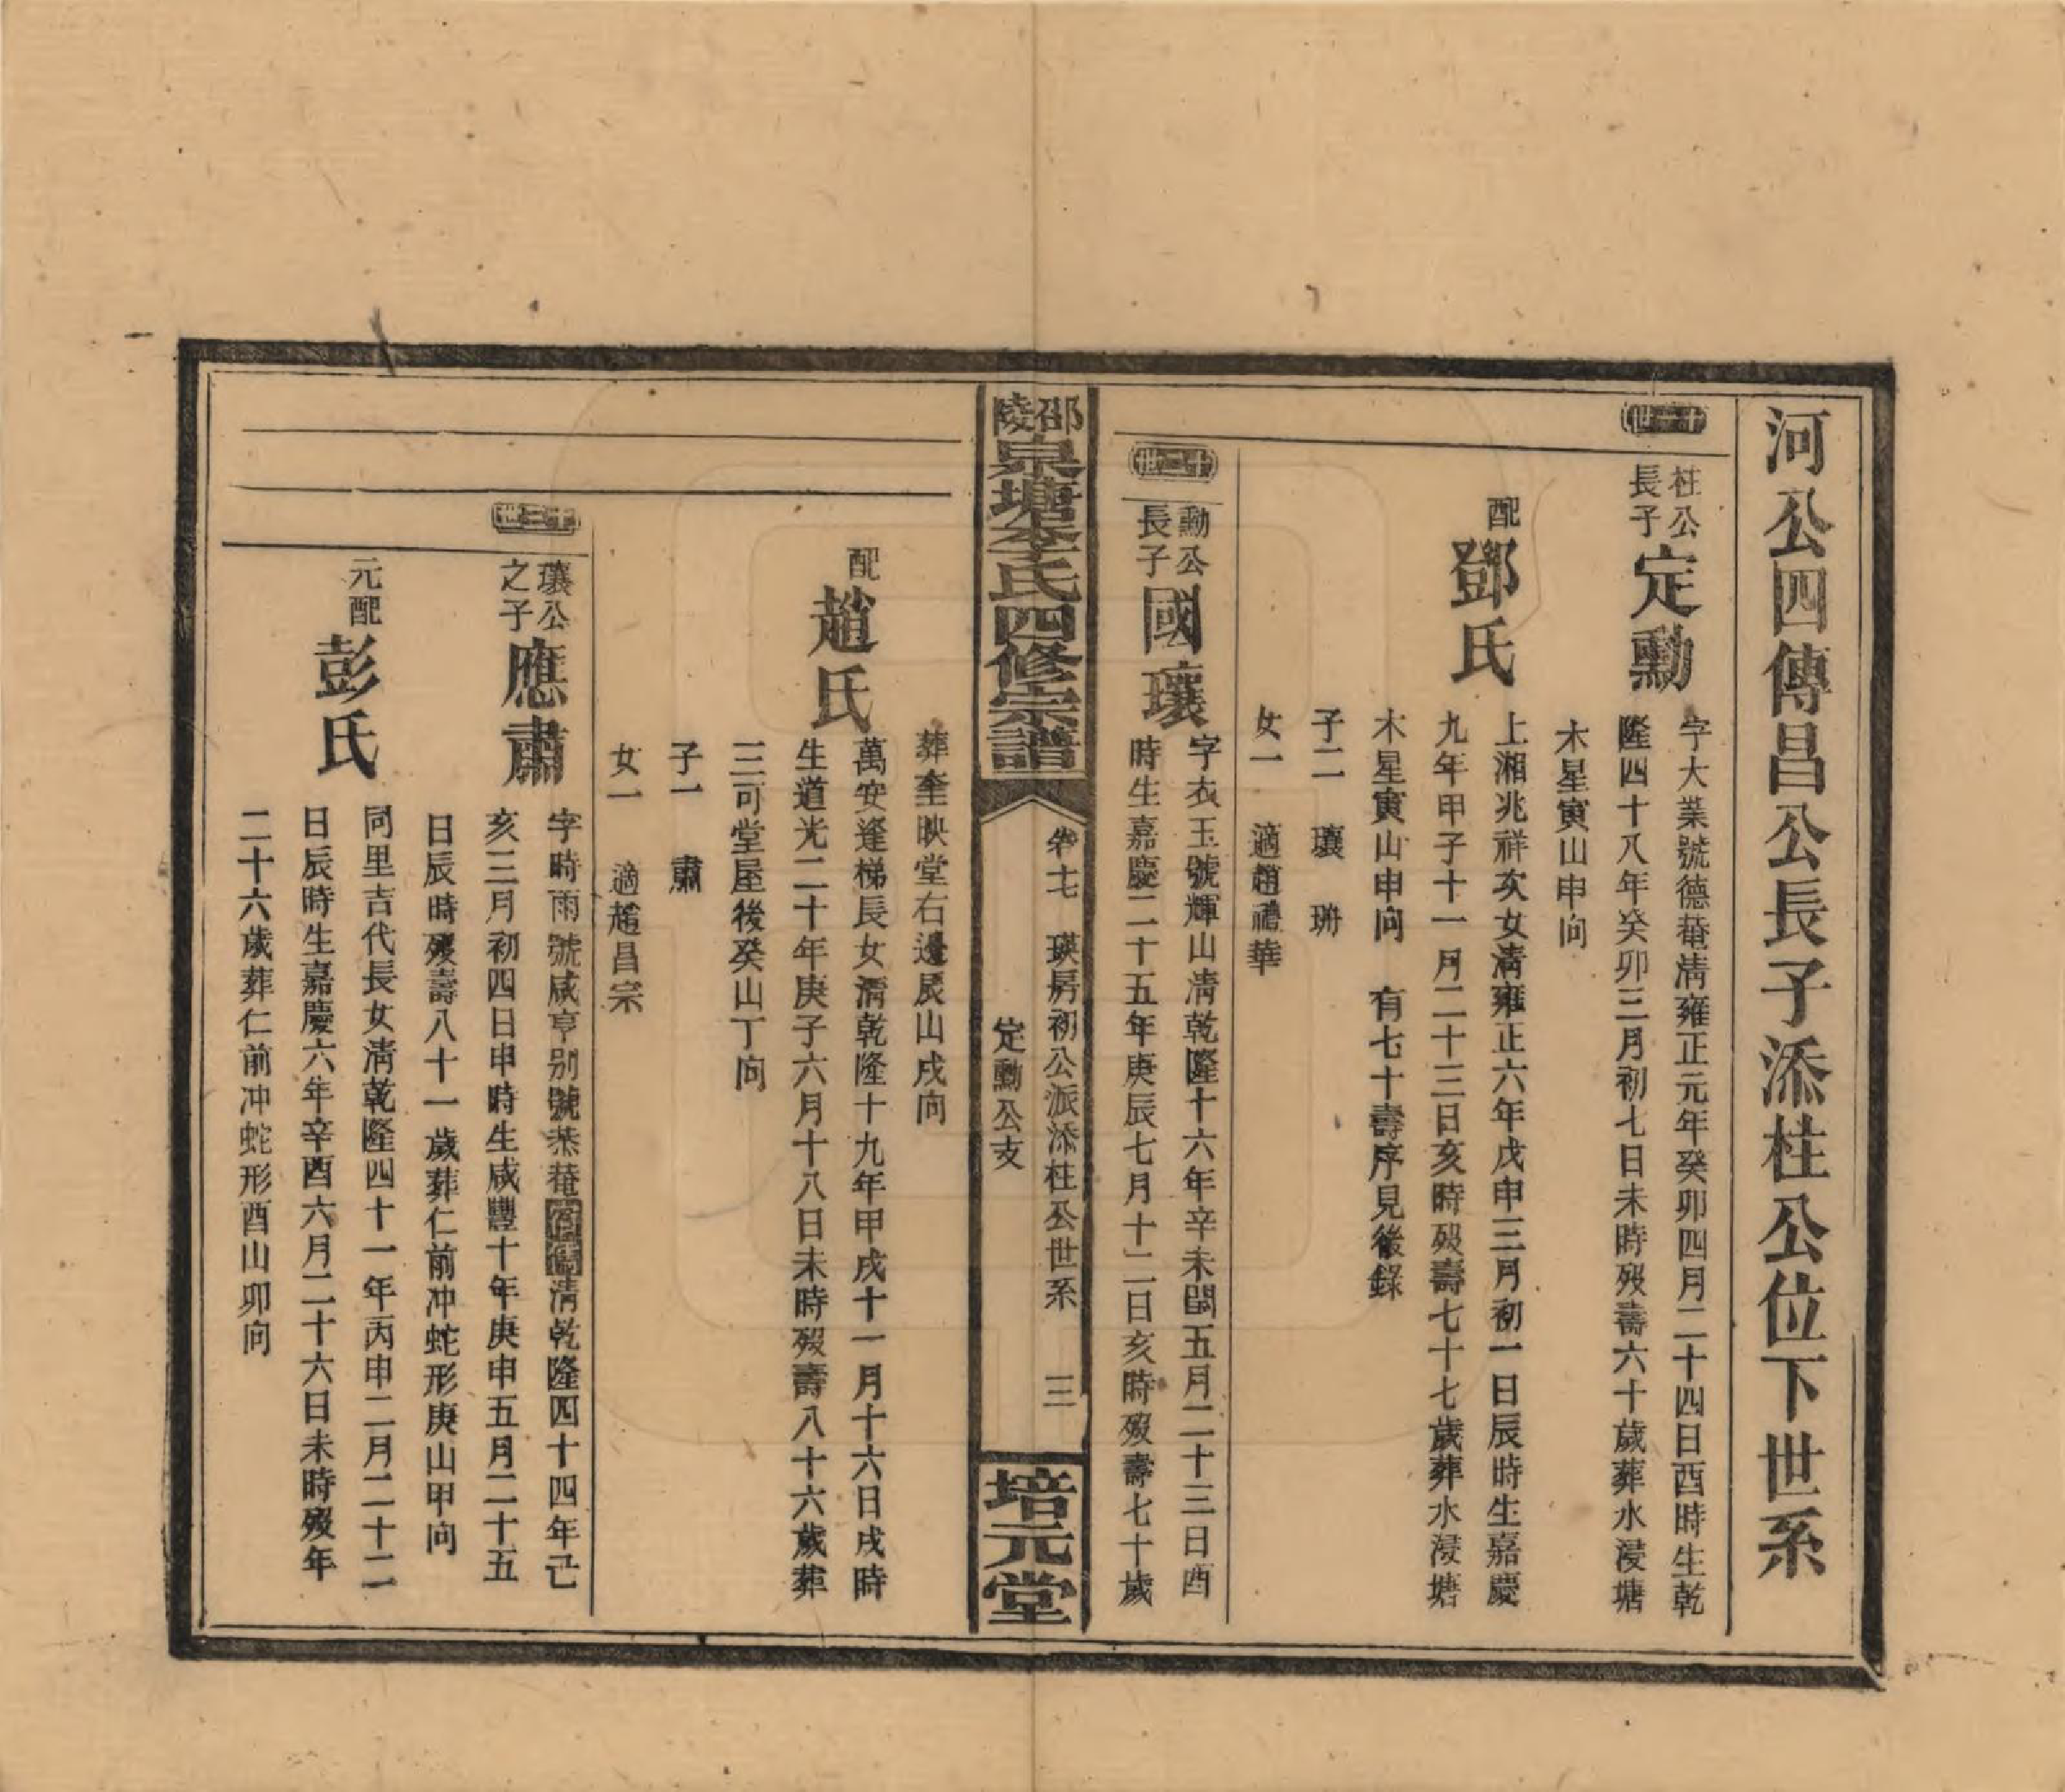 河公四傳昌公長子添柱公位下世系
十一世
柱公長子
定勳
字大業號德菴清雍正元年癸卯四月二十四日酉時生乾
隆四十八年癸卯三月初七日未時歿壽六十歲葬水浸塘
木星寅山申向
配
鄧氏
上湘兆祥次女清雍正六年戊申三月初一日辰時生嘉慶
九年甲子十一月二十三日亥時歿壽七十七歲葬水浸塘
木星寅山申向 有七十壽序見後錄
子二 瓖 珘
女一 適趙禮華
十二世
勳公長子
國瓖
字衣玉號輝山清乾隆十六年辛未閏五月二十三日酉
時生嘉慶二十五年庚辰七月十二日亥時歿壽七十歲
邵陵
泉塘李氏四修宗譜
卷十七 瑛房初公派添柱公世系 三
定勳公支
培元堂
葬奎映堂右邊辰山戌向
配
趙氏
萬安逢梯長女清乾隆十九年甲戌十一月十六日戌時
生道光二十年庚子六月十八日未時歿壽八十六歲葬
三可堂屋後癸山丁向
子一 肅
女一 適趙昌宗
十三世
瓖公之子
應肅
字時雨號咸亨别號恭菴清乾隆四十四年己
亥三月初四日申時生咸豐十年庚申五月二十五
日辰時歿壽八十一歲葬仁前冲蛇形庚山甲向
元配
彭氏
同里吉代長女清乾隆四十一年丙申二月二十二
日辰時生嘉慶六年辛酉六月二十六日未時歿年
二十六歲葬仁前冲蛇形酉山卯向